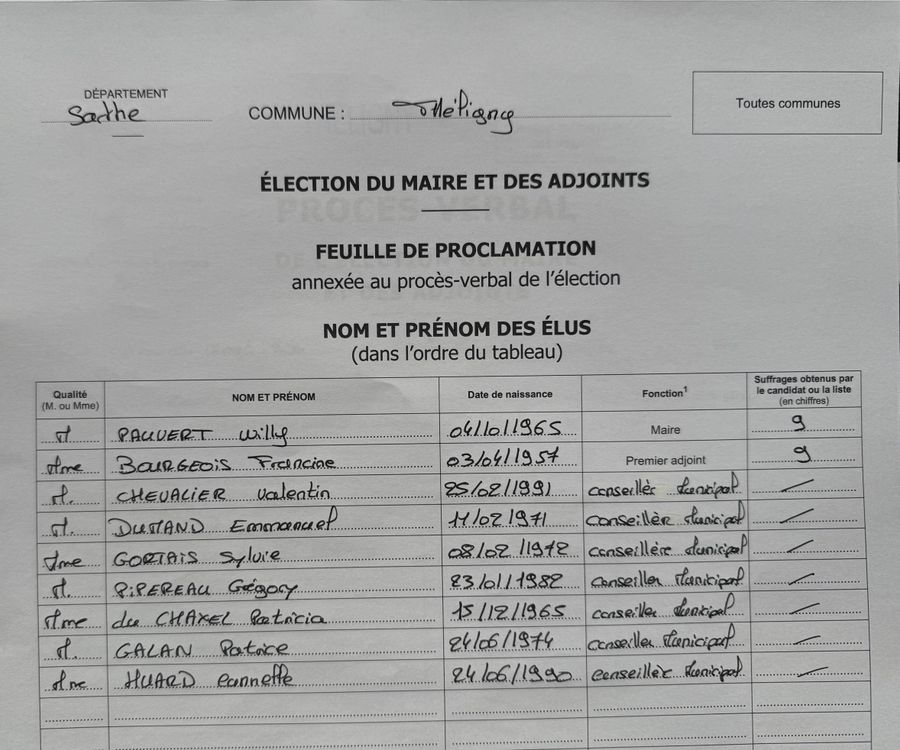 DÉPARTEMENT
Sarthe
COMMUNE : Méligny
Toutes communes
ÉLECTION DU MAIRE ET DES ADJOINTS
FEUILLE DE PROCLAMATION
annexée au procès-verbal de l'élection
NOM ET PRÉNOM DES ÉLUS
(dans l'ordre du tableau)
Qualité (M. ou Mme) NOM ET PRÉNOM Date de naissance Fonction1 Suffrages obtenus par le candidat ou la liste (en chiffres)
M PAUVERT Willy 04/10/1965 Maire 9
Mme BOURGEOIS Francine 03/04/1957 Premier adjoint 9
M. CHEVALIER Valentin 25/02/1991 conseiller Municipal /
M. DUMAND Emmanuel 11/02/1971 conseiller Municipal /
Mme GORTAIS Sylvie 08/02/1972 conseillère Municipal /
M. PIPEREAU Grégory 23/01/1982 conseiller Municipal /
Mme du CHAXEL Patricia 15/12/1965 conseiller Municipal /
M. GALAN Patrice 24/06/1974 conseiller Municipal /
Mme HUARD 24/06/1990 conseillère Municipal /